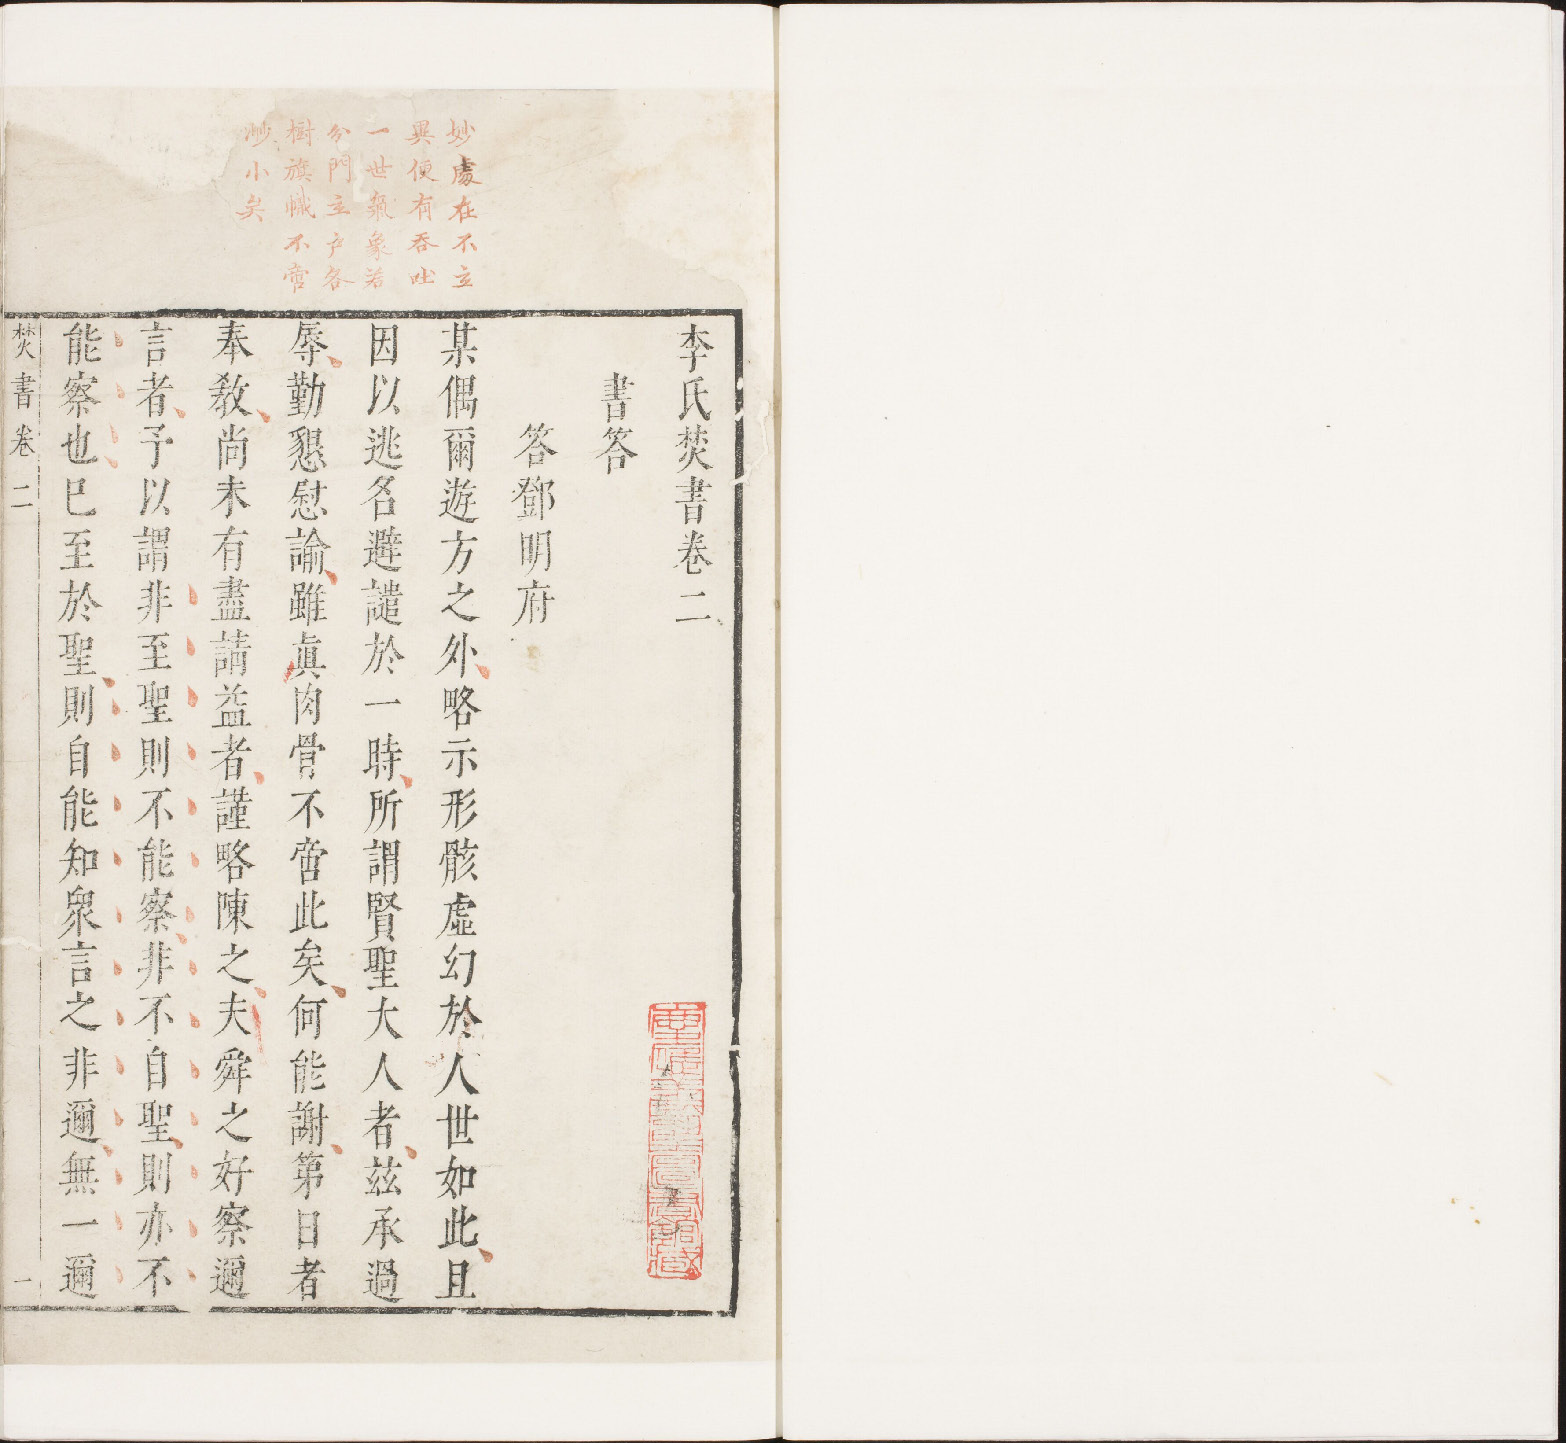 李氏焚書卷二
書答
答鄧明府
某偶爾遊方之外略示形骸虛幻於人世如此且
因以逃名避譴於一時所謂賢聖大人者茲承過
辱勤懇慰諭雖眞肉骨不啻此矣何能謝第日者
奉教尚未有盡請益者謹略陳之夫舜之好察邇
言者予以謂非至聖則不能察非不自聖則亦不
能察也已至於聖則自能知眾言之非邇無一邇
焚書卷二
一
妙處在不立
異便有吞吐
一世氣象若
分門立戶各
樹旗幟不啻
渺小矣